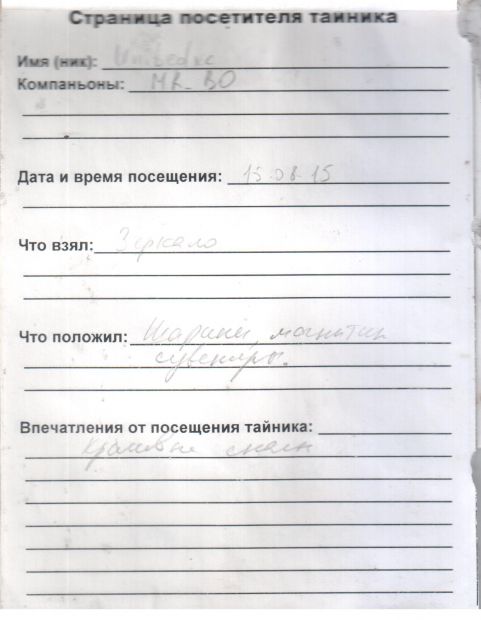 Страница посетителя тайника
Имя (ник):
Компаньоны: MR_BO
Дата и время посещения: 15.08.15
Что взял: Зеркало
Что положил: Шарики, магнитик
сувениры.
Впечатления от посещения тайника: